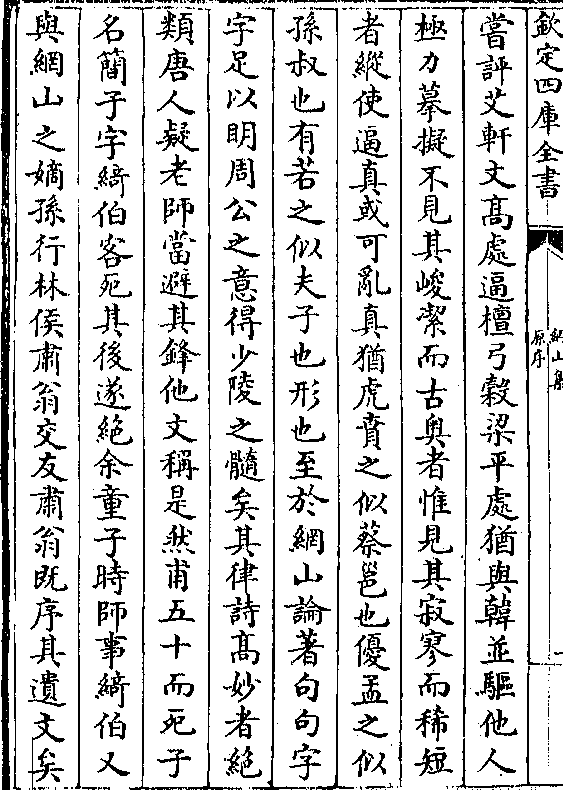 欽定四庫全書
網山集
原序
嘗評艾軒文高處逼檀弓穀梁平處猶與韓並驅他人
極力摹擬不見其峻潔而古奥者惟見其寂寥而稀短
者縱使逼真或可亂真猶虎賁之似蔡邕也優孟之似
孫叔也有若之似夫子也形也至於網山論著句句字
字足以明周公之意得少陵之髓矣其律詩高妙者絶
類唐人疑老師當避其鋒他文稱是然甫五十而死子
名簡子字綺伯客死其後遂絶余童子時師事綺伯又
與網山之嫡孫行林侯肅翁交友肅翁既序其遺文矣